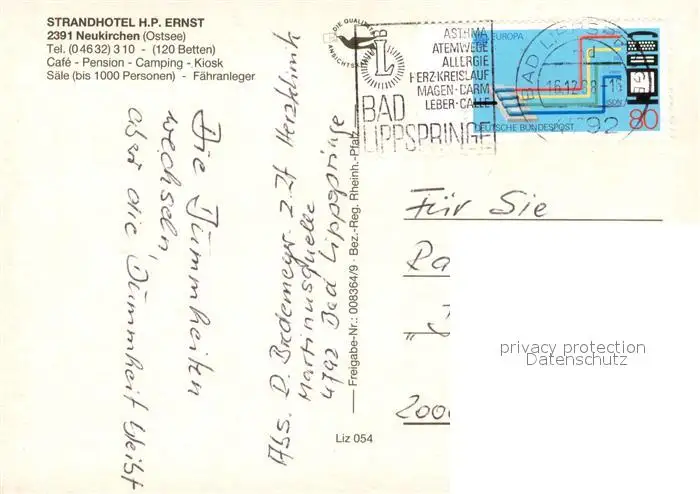 STRANDHOTEL H.P. ERNST
2391 Neukirchen (Ostsee)
Tel. (04632) 310 - (120 Betten)
Café - Pension - Camping - Kiosk
Säle (bis 1000 Personen) - Fähranleger
Die Dummheiten
wechseln,
aber die Dummheit bleibt
Abs. D. Bredemeyer z.Zt Herzklinik
Martinusquelle
4792 Bad Lippspringe
Freigabe-Nr.: 008364/9 · Bez.-Reg. Rheinh.-Pfalz
Liz 054
DIE QUALITÄTS
ANSICHTSKARTE
ASTHMA
ATEMWEGE
ALLERGIE
HERZ-KREISLAUF
MAGEN-DARM
LEBER-GALLE
BAD
LIPPSPRINGE
EUROPA
DEUTSCHE BUNDESPOST
80
BAD LIPPSPRINGE
16.12.88-16
4792
Für Sie
Ra
2000
privacy protection
Datenschutz